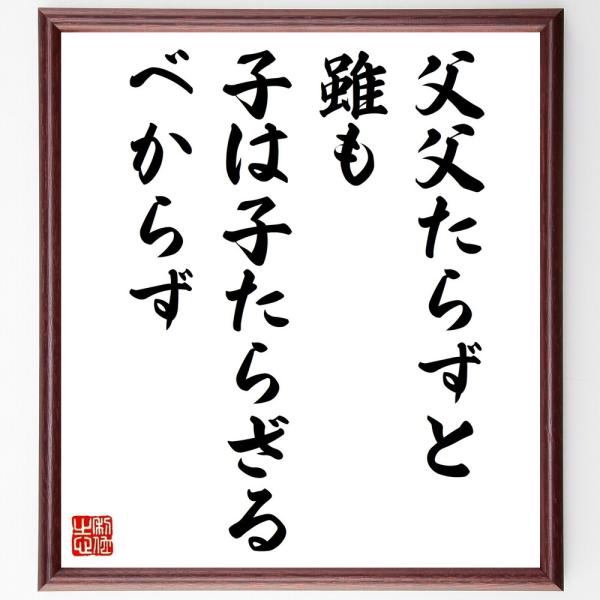 父父たらずと
雖も
子は子たらざる
べからず